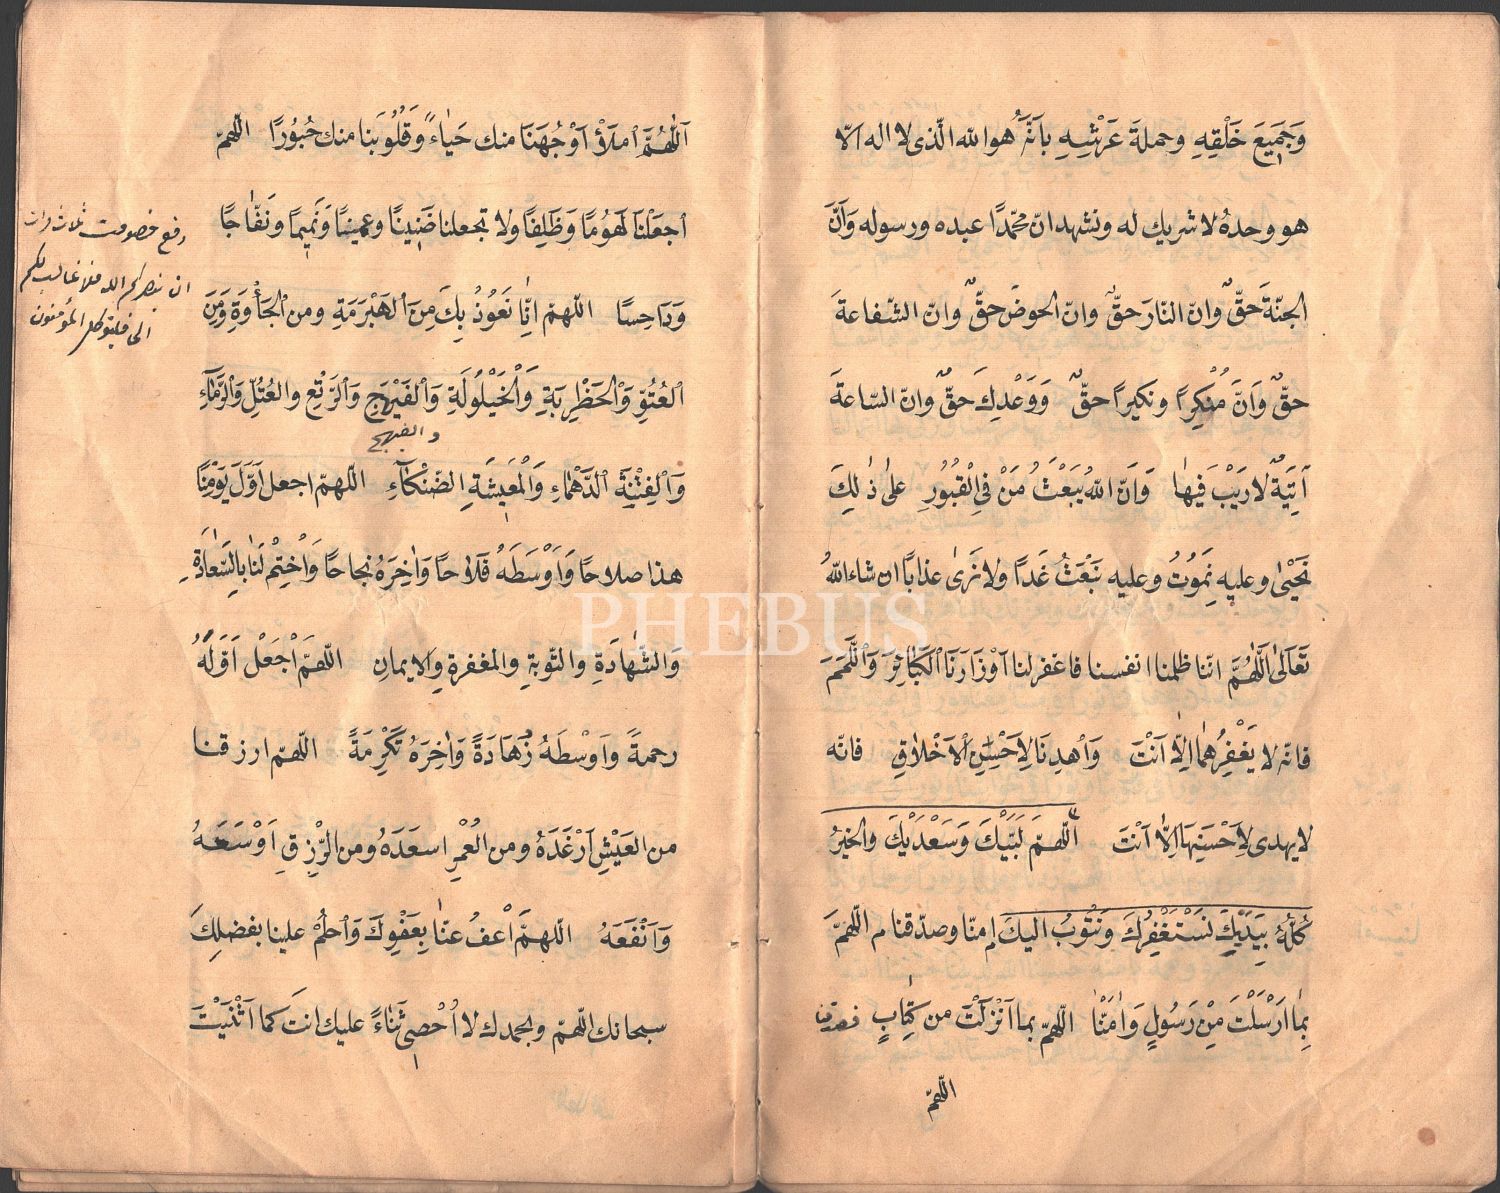 وَجَمِيعَ خَلْقِهِ وحملةَ عَرْشِهِ بأنَّهُ هو الله الّذى لا اله الاّ
هو وحدهُ لا شريك له ونشهد انّ محمّدًا عبده ورسوله وَأنَّ
الجنّةَ حقٌّ وانّ النّارَ حقٌّ وانّ الحوضَ حقٌّ وانّ الشّفاعةَ
حقٌّ وَانَّ مُنْكِرًا ونكيرًا حقٌّ وَوَعْدَكِ حقٌّ وانّ السّاعةَ
آتِيَةٌ لَارَيْبَ فيها وَانّ اللّٰه يُبَعْثُ مَنْ فِى الْقُبُورِ عَلىٰ ذٰلِكَ
نَحْيٰى وعليه نمَوُتُ وعليه نَبْعَثُ غَدًا ولا نَرىٰ عذابًا ان شاء اللّٰهُ
تَعَالَى اَللّهُمَّ انّنا ظلمنا انفسنا فاغفر لنا اَوْزَارَنَا اَلكَبَائِرَ وَاَللَّمَمَ
فانّه لا يَغْفِرُهُمَا اِلاّ اَنْتَ وَاَهْدِنَا لِاَحْسَنِ اْلاَخْلاَقِ فانّه
لا يهدى لِاَحْسَنِهَا اِلاّ اَنْتَ اَللّهمّ لَبَّيْكَ وَسَعْدَيْكَ والخيرُ
كُلُّهُ بِيَدَيْكَ نَسْتَغْفِرُكَ وَنَتُوبُ اليكَ امنّا وصدّقنا م اللّهمَّ
بِمَا اَرْسَلْتَ مِنْ رَسُولٍ وَاٰمَنّا اللّهمّ بما اَنْزَلْتَ من كِتَابٍ فصدقنا
اللّهمّ
اَللّٰهُمَّ املَأْ اَوْجُهَنَا منك حَيَاءً وَقُلُوبَنا منك حُبُورًا اللّهمّ
اجعَلْنَا لَهُومًا وَظَلِفًا ولا تجعلنا ضَنِينًا وعمينًا وَنَمِيما وَنَفّاجًا
وَدَاحِسًا اللّهمّ اِنّا نَعُوذُ بِكَ مِنَ الهَبْرَمَةِ ومن الجَأْوَةِ وَمِنَ
العُتُوِّ وَالْحَظْرِبَةِ وَالْخَيْلُولَةِ وَالفَيْهَجِ وَالرَّتِعِ والعُتُلِّ وَالرَّمَاءِ
والفيهج
وَالفِتْنَةِ الدَّهْمَاءِ وَالْمَعِيشَةِ الضّنْكَاءِ اللّهمّ اجعل اَوَّلَ يَوْمِنَا
هذا صلاحًا وَاَوْسَطَهُ فَلاحًا وَاٰخِرَهُ نجاحًا وَاخْتِمْ لَنَا بِالسَّعَادَةِ
وَالشَّهادَةِ والتّوبةِ والمغفرةِ والايمانِ اللّهمّ اجْعَلْ اَوّلَهُ
رحمةً وَاَوْسطَهُ زَهَادَةً وَاٰخِرَهُ تَكْرِمَةً اللّهمّ ارزقنا
من العَيْشِ اَرْغَدَهُ ومن العُمْرِ اسعَدَهُ ومن الرّزقِ اَوْسَعَهُ
وَاَنْفَعَهُ اللّهمَّ اعْفُ عنّا بِعَفْوِكَ وَاحلُمْ علينا بفضلِكَ
سبحانك اللّهمّ وبحمدك لا اُحْصِى ثَنَاءً عليك انت كَما اَثْنَيْتَ
رفع خصومت ثلاث مرات
ان ينصركم الله فلا غالب لكم
الى فليتوكل المؤمنون
PHEBUS